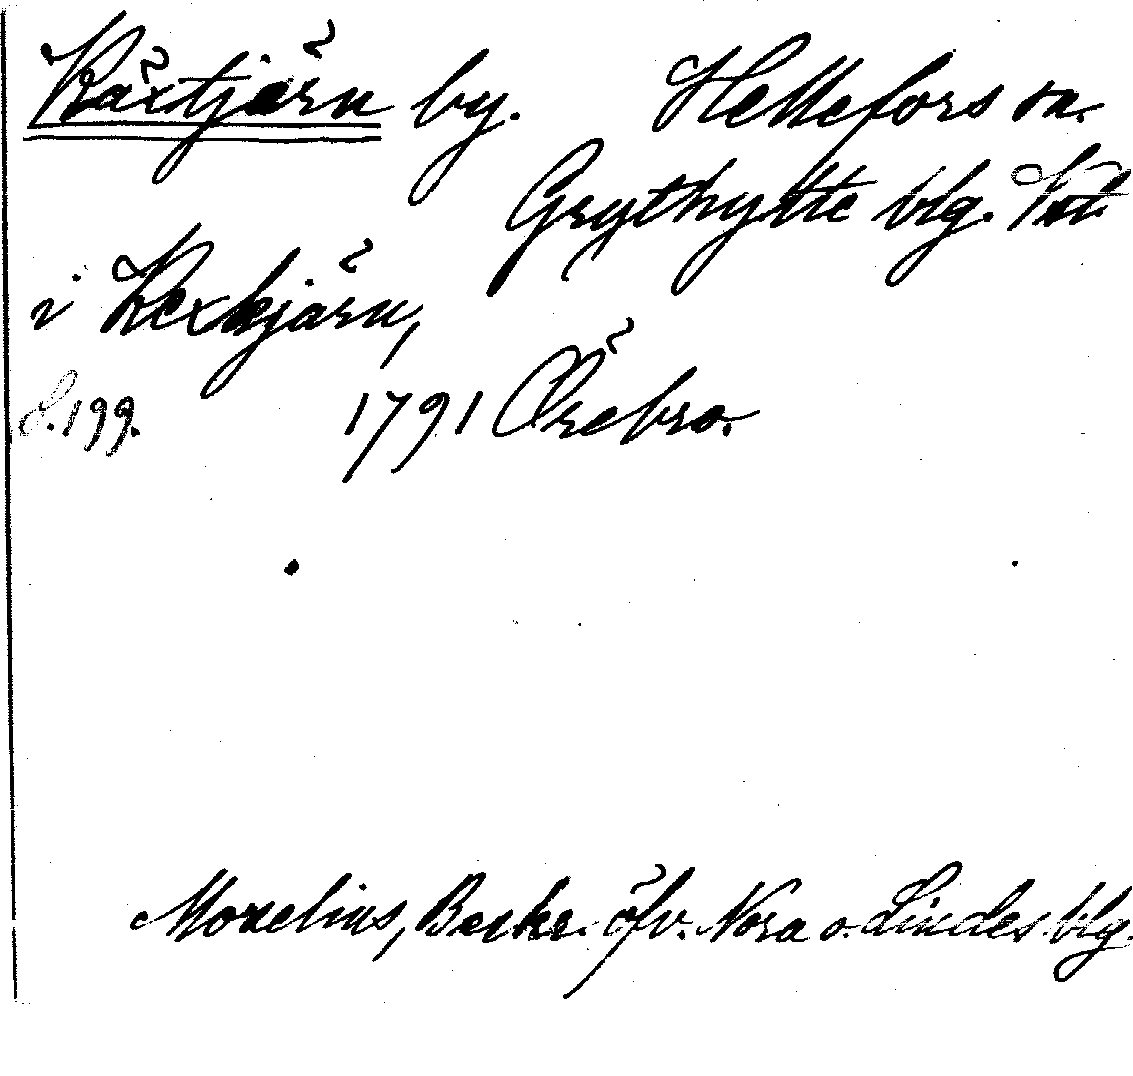 Räxtjärn by. Hellefors sn.
Grythytte blg. Vstl.
i Rexkjärn,
S. 199. 1791 Örebro.
Morelius, Beskr. öfv. Nora o. Lindes blg.